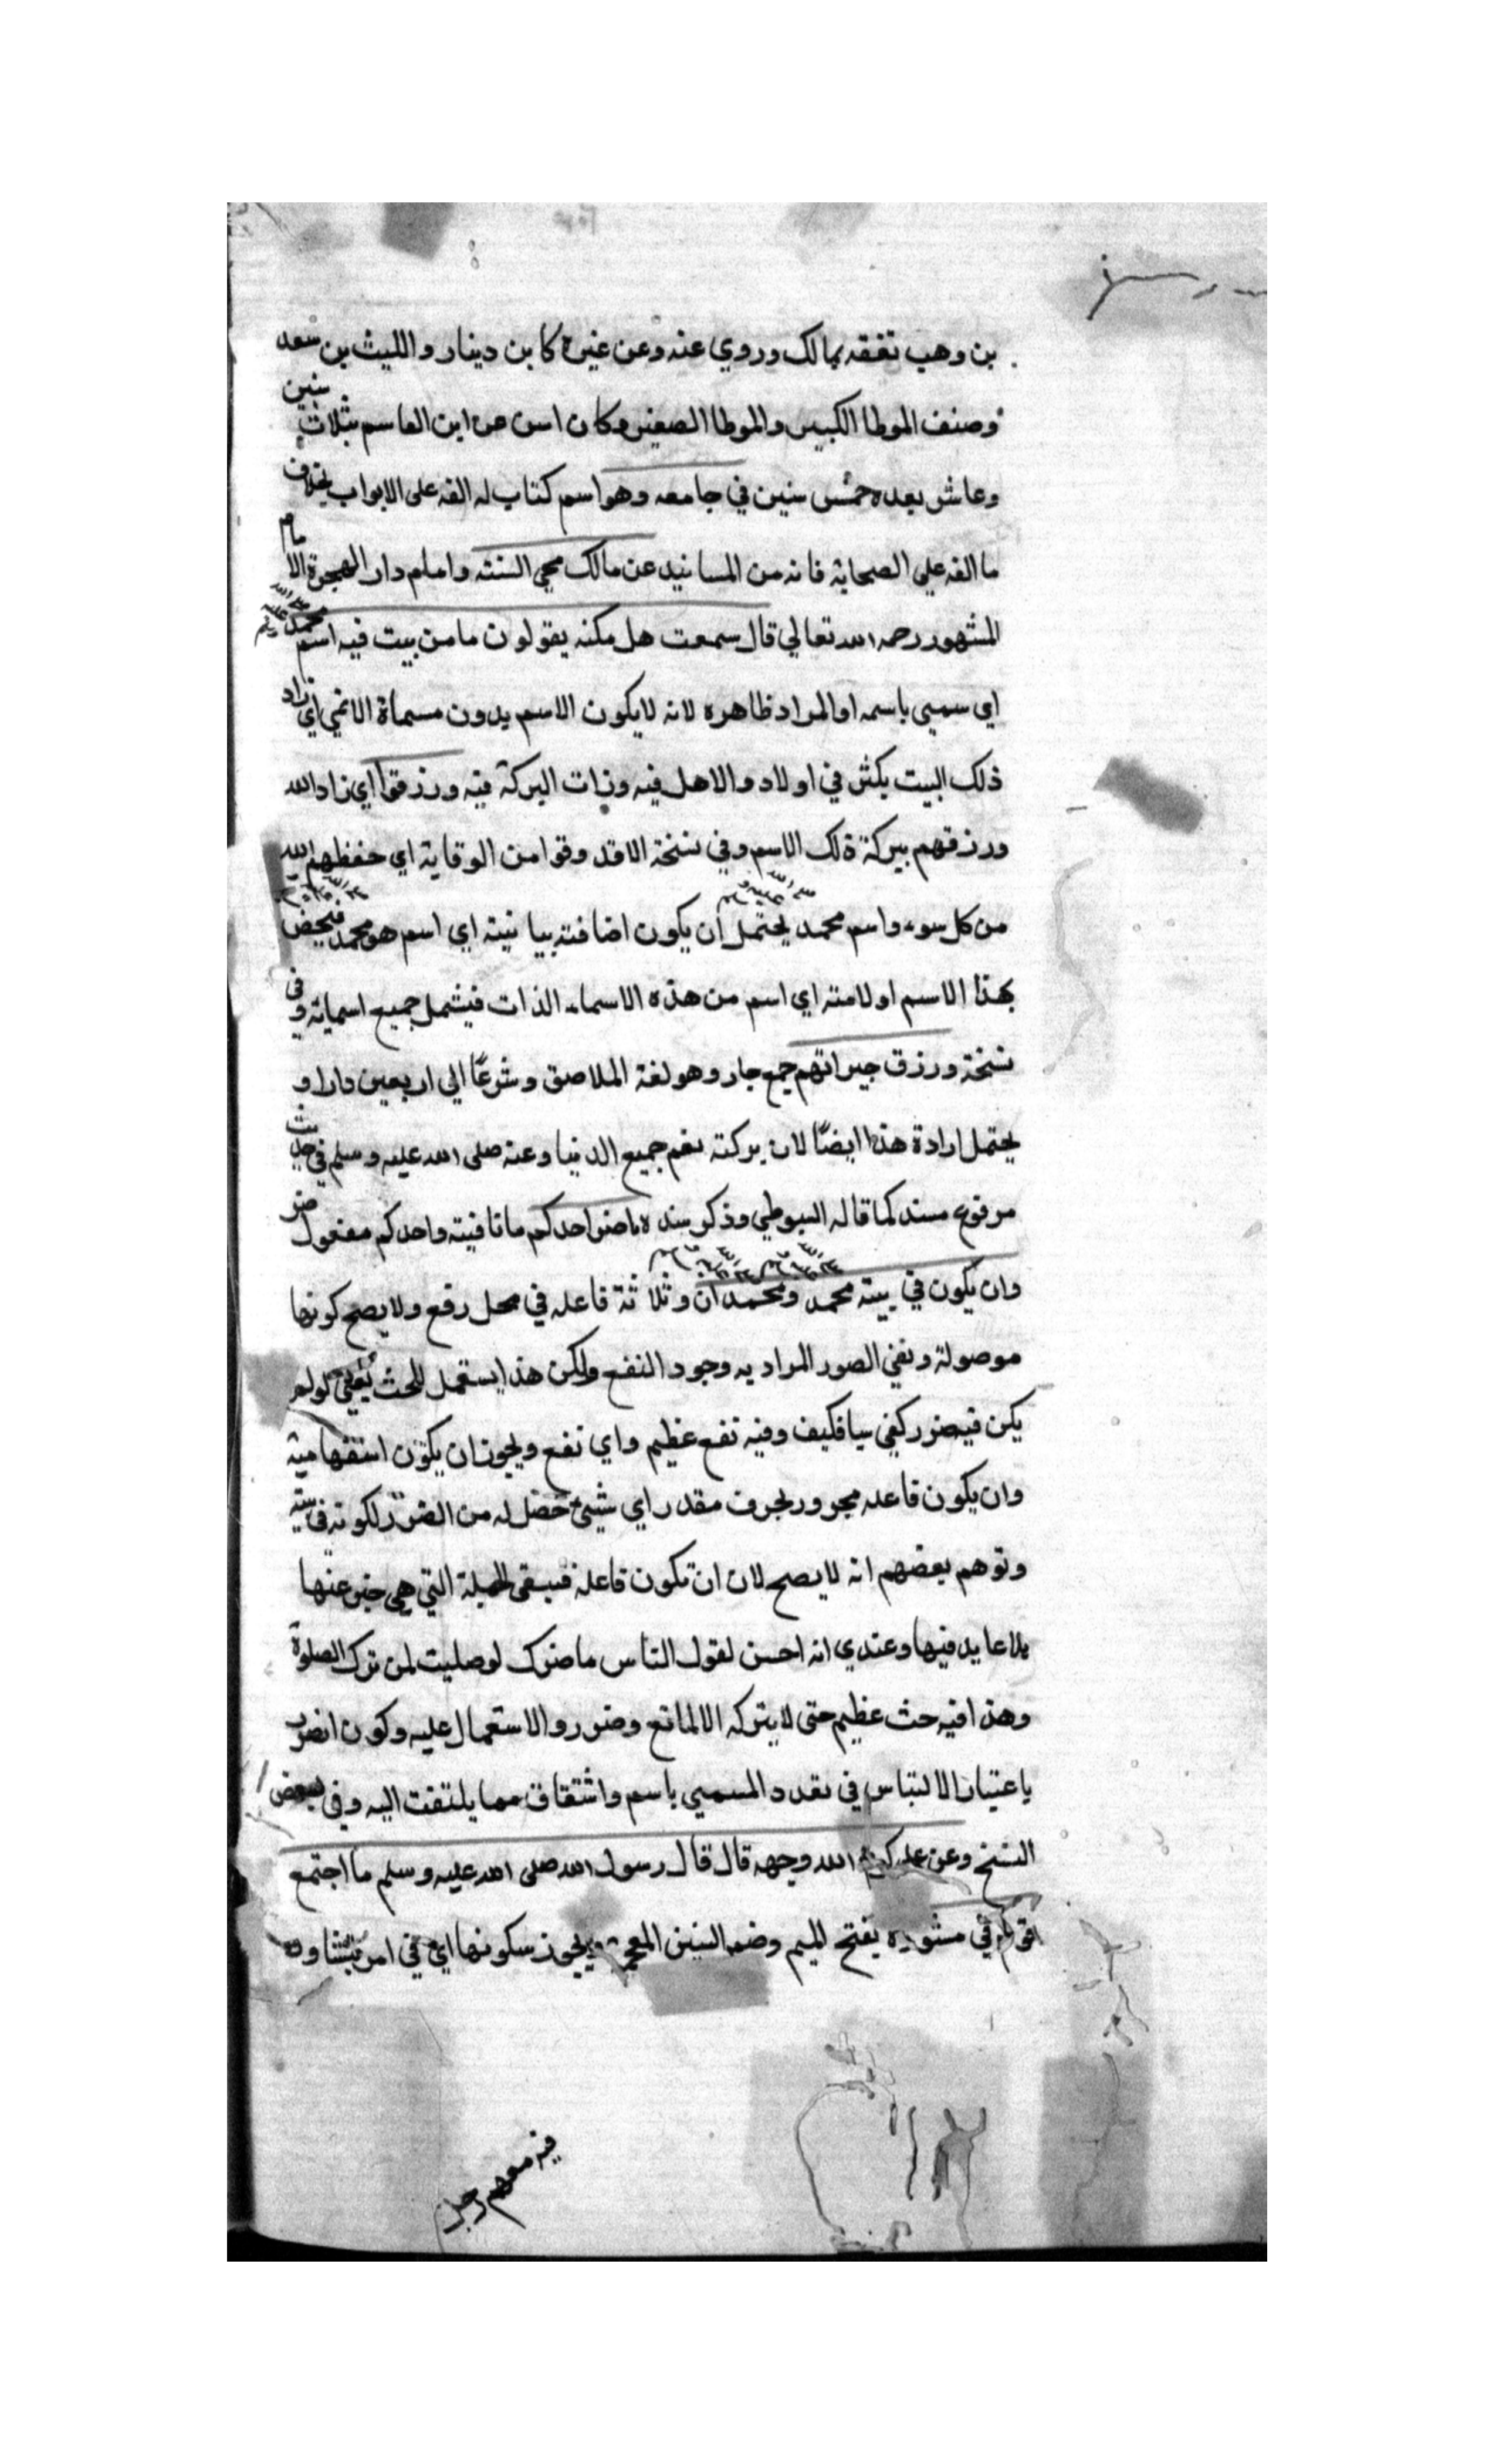 بن وهب تفقه بمالك وروي عنه وعن غيره كابن دينار والليث بن سعد
وصنف الموطا الكبير والموطا الصغير وكان اسن من ابن القاسم بثلاث سنين
وعاش بعده خمس سنين في جامعه وهو اسم كتاب له الفه على الابواب بخلاف
ما الفه علي الصحابة فانه من المسانيد عن مالك محي السنته وامام دار الهجرة الامام
المشهور رحمه الله تعالي قال سمعت هل مكنه يقولون ما من بيت فيه اسم محمد
اي سمي باسمه او المراد ظاهره لانه لايكون الاسم بدون مسماة الانمي اي زاد
ذلك البيت بكثر في اولاد والاهل فيه وزات البركة فيه ورزقوا اي زاد الله
ورزقهم ببركة ذلك الاسم وفي نسخة الاقد وقوا من الوقاية اي حفظهم الله
من كل سوء واسم محمد صلى الله عليه وسلم يحتمل ان يكون اضافته بيانيته اي اسم هو محمد فيحض
بهذا الاسم او لامته اي اسم من هذه الاسماء الذات فيشمل جميع اسمائه وفي
نسخة ورزق جيرانهم جمع جار وهو لغة الملاصق وشرعًا الي اربعين دارا و
يحتمل ارادة هذا ايضًا لان بركته نعم جميع الدنيا وعنه صلى الله عليه وسلم في حديث
مرفوع مسند كما قاله السيوطي وذكر سنده ما ضر احدكم ما نافيته واحدكم مفعول ضر
وان يكون في بيته محمد ومحمدان وثلاثة فاعله في محل رفع ولا يصح كونها
موصولة ونفي الصور المراد به وجود النفع ولكن هذا يستعمل للحث يعني لولم
يكن فيضرر كفي سيافكيف وفيه نفع عظيم واي نفع ويجوز ان يكون استفهامية
وان يكون فاعله مجرور بحرف مقدر اي شيئ حصل له من الضرر لكونه في بيته
وتوهم بعضهم انه لا يصح لان ان تكون فاعله فيبقى الجملة التي هي خبر عنها
بلا عايد فيها وعندي انه احسن لقول الناس ما ضرك لو صليت لمن ترك الصلوة
وهذا فيه حث عظيم حتى لا يتركه الا لمانع وضرر والاستعمال عليه وكون انضر
باعتبار الالتباس في تعدد المسمي باسم واشتقاق مما يلتفت اليه وفي بعض
النسخ وعن علي كرم الله وجهه قال قال رسول الله صلى الله عليه وسلم ما اجتمع
قوم في مشورة بفتح الميم وضم الشين المعجمة ويجوز سكونها اي في امر يتشاور
فيه معهم رجل